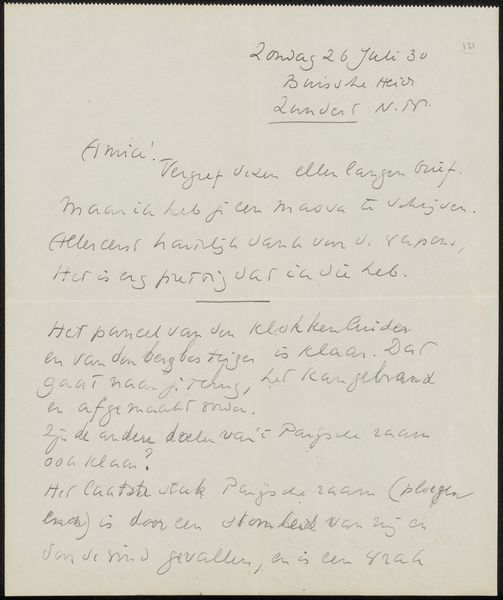 121
Zondag 26 Juli 30
Buissche Heide
Zundert N.Br.
Amice!
Vergeef dezen ellenlangen brief.
Maar ik heb je een massa te schrijven.
Allereerst hartelijk dank voor de
Het is erg prettig dat ik die heb.
Het paneel van den Klokkenluider
en van den bergbestijger is klaar. Dat
gaat naar je terug, het kan gebrand
en afgemaakt worden.
Zijn de andere deelen van 't Parijsche raam
ook klaar?
Het laatste stuk Parijsche raam (ploegen
) is door een stomheid van mij en
door de wind gevallen, en is een